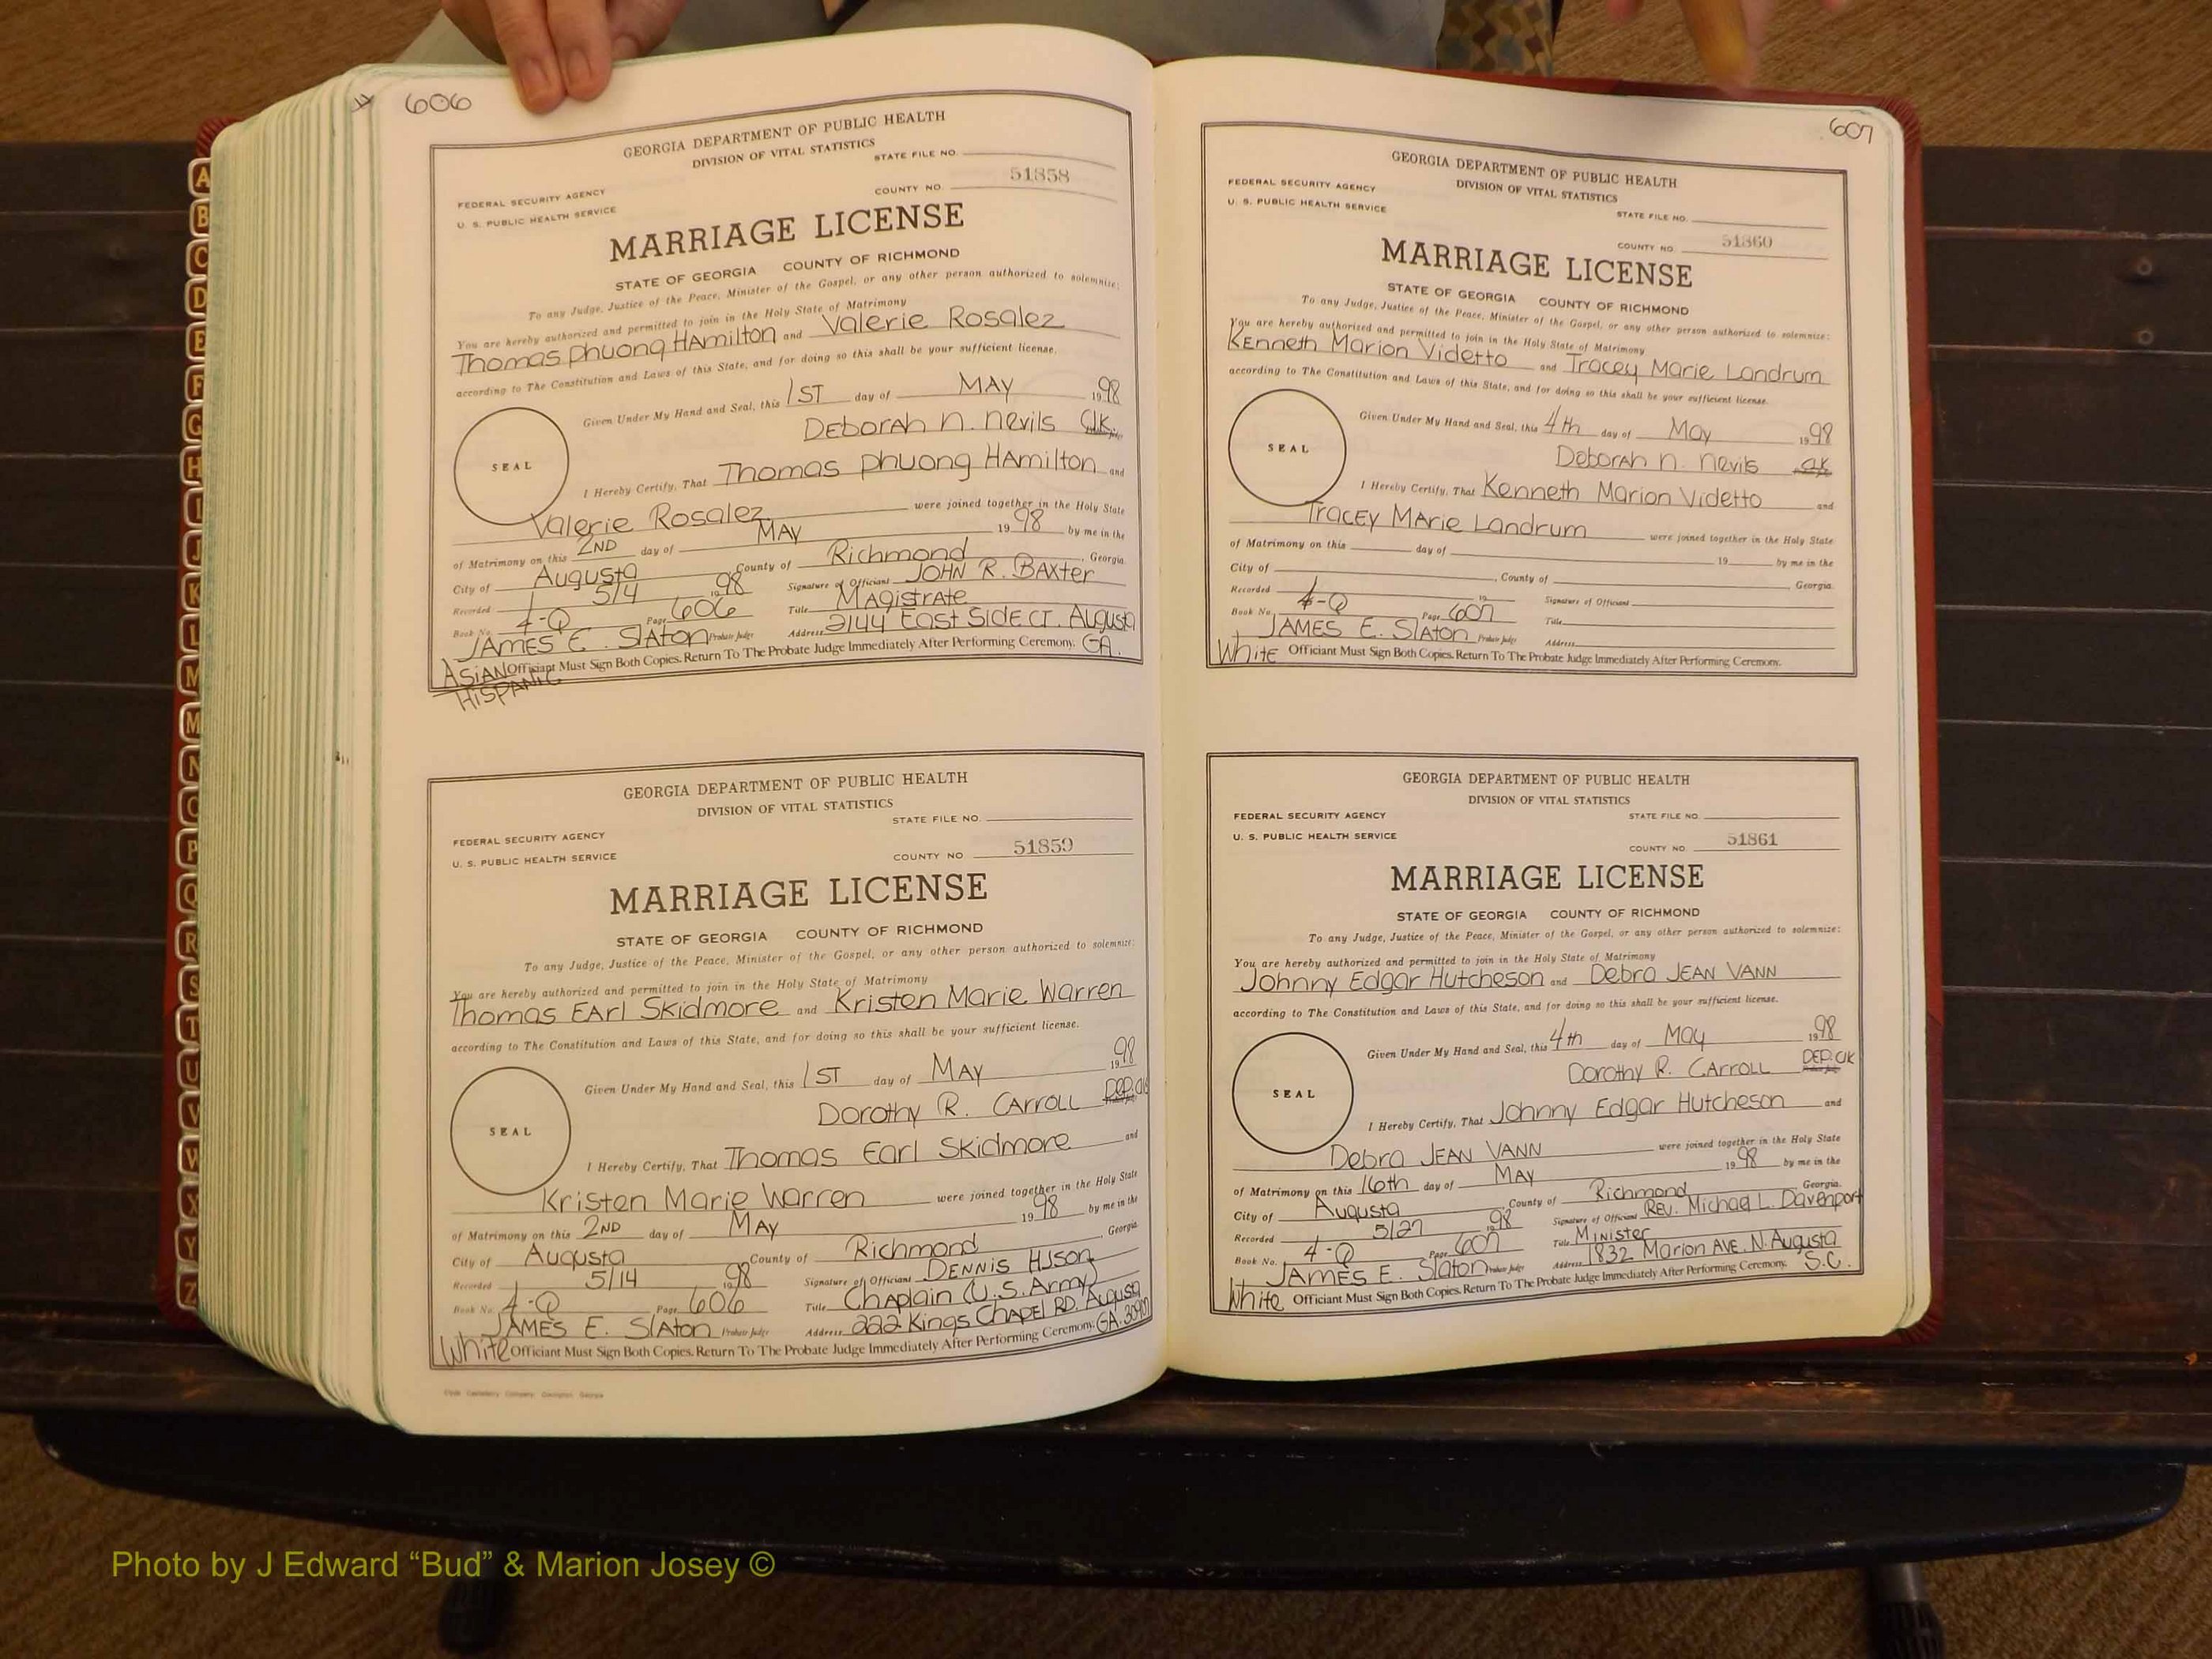 606
GEORGIA DEPARTMENT OF PUBLIC HEALTH
DIVISION OF VITAL STATISTICS
STATE FILE NO.
FEDERAL SECURITY AGENCY
COUNTY NO. 51858
U. S. PUBLIC HEALTH SERVICE
MARRIAGE LICENSE
STATE OF GEORGIA COUNTY OF RICHMOND
To any Judge, Justice of the Peace, Minister of the Gospel, or any other person authorized to solemnize:
You are hereby authorized and permitted to join in the Holy State of Matrimony
Thomas Phuong HAmilton and Valerie Rosalez
according to The Constitution and Laws of this State, and for doing so this shall be your sufficient license.
Given Under My Hand and Seal, this 1ST day of MAY 1998
DEborAh N. Nevils Clk.
SEAL
I Hereby Certify, That Thomas Phuong HAmilton and
Valerie Rosalez were joined together in the Holy State
of Matrimony on this 2ND day of MAY 1998 by me in the
City of Augusta County of Richmond, Georgia
Recorded 5/4 1998 Signature of Officiant JOHN R. BAxter
Book No. 4-Q Page 606 Title MAgistrAte
JAMES E. SlAton Probate Judge Address 2144 East Side CT. Augusta
GA.
ASIAN Officiant Must Sign Both Copies. Return To The Probate Judge Immediately After Performing Ceremony.
HISPANIC
GEORGIA DEPARTMENT OF PUBLIC HEALTH
DIVISION OF VITAL STATISTICS
STATE FILE NO.
FEDERAL SECURITY AGENCY
COUNTY NO 51859
U. S. PUBLIC HEALTH SERVICE
MARRIAGE LICENSE
STATE OF GEORGIA COUNTY OF RICHMOND
To any Judge, Justice of the Peace, Minister of the Gospel, or any other person authorized to solemnize:
You are hereby authorized and permitted to join in the Holy State of Matrimony
Thomas EArl Skidmore and Kristen Marie Warren
according to The Constitution and Laws of this State, and for doing so this shall be your sufficient license.
Given Under My Hand and Seal, this 1ST day of MAY 1998
Dorothy R. CARROLL DEP. Clk
SEAL
I Hereby Certify, That Thomas Earl Skidmore and
Kristen Marie Warren were joined together in the Holy State
of Matrimony on this 2ND day of MAY 1998 by me in the
City of Augusta County of Richmond, Georgia
Recorded 5/14 1998 Signature of Officiant DENNIS
Book No. 4-Q Page 606 Title ChAplain (U.S. Army)
JAMES E. SlAton Probate Judge Address 222 Kings ChAPEl RD. Augusta
GA.
White Officiant Must Sign Both Copies. Return To The Probate Judge Immediately After Performing Ceremony.
607
GEORGIA DEPARTMENT OF PUBLIC HEALTH
DIVISION OF VITAL STATISTICS
FEDERAL SECURITY AGENCY
U. S. PUBLIC HEALTH SERVICE
STATE FILE NO.
COUNTY NO. 51860
MARRIAGE LICENSE
STATE OF GEORGIA COUNTY OF RICHMOND
To any Judge, Justice of the Peace, Minister of the Gospel, or any other person authorized to solemnize:
You are hereby authorized and permitted to join in the Holy State of Matrimony
KEnneth Marion Videtto and Tracey Marie Landrum
according to The Constitution and Laws of this State, and for doing so this shall be your sufficient license.
Given Under My Hand and Seal, this 4th day of May 1998
DeborAh N. Nevils Clk
SEAL
I Hereby Certify, That Kenneth Marion Videtto and
TracEy MArie Landrum were joined together in the Holy State
of Matrimony on this day of 19 by me in the
City of, County of Georgia.
Recorded 19 Signature of Officiant
Book No. 4-Q Page 607 Title
JAMES E. SlAton Probate Judge Address
White Officiant Must Sign Both Copies. Return To The Probate Judge Immediately After Performing Ceremony.
GEORGIA DEPARTMENT OF PUBLIC HEALTH
DIVISION OF VITAL STATISTICS
FEDERAL SECURITY AGENCY
STATE FILE NO.
U. S. PUBLIC HEALTH SERVICE
COUNTY NO. 51861
MARRIAGE LICENSE
STATE OF GEORGIA COUNTY OF RICHMOND
To any Judge, Justice of the Peace, Minister of the Gospel, or any other person authorized to solemnize:
You are hereby authorized and permitted to join in the Holy State of Matrimony
Johnny Edgar Hutcheson and Debra JEAN VANN
according to The Constitution and Laws of this State, and for doing so this shall be your sufficient license.
Given Under My Hand and Seal, this 4th day of MAy 1998
Dorothy R. CARROLL DEP. Clk
SEAL
I Hereby Certify, That Johnny Edgar Hutcheson and
Debra JEAN VANN were joined together in the Holy State
of Matrimony on this 16th day of MAY 1998 by me in the
City of Augusta County of Richmond Georgia.
Recorded 5/27 1998 Signature of Officiant REV. Michael L. Davenport
Book No. 4-Q Page 607 Title Minister
JAMES E. Slaton Probate Judge Address 1832 Marion AVE. N. Augusta
S.C.
White Officiant Must Sign Both Copies. Return To The Probate Judge Immediately After Performing Ceremony.
A
B
C
D
E
F
G
H
I
J
K
L
M
M
N
O
P
Q
R
S
T
U
V
W
X
Y
Z
Photo by J Edward “Bud” & Marion Josey ©